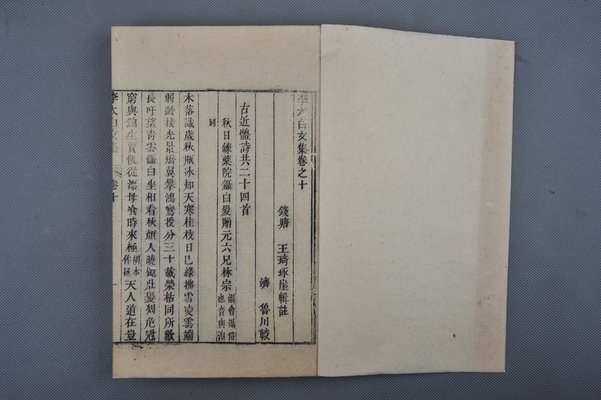 李太白文集卷之十
錢塘 王琦琢崖輯註
濟 魯川較
古近體詩共二十四首
秋日鍊藥院鑷白髮贈元六兄林宗
木落識歲秋瓶冰知天寒桂枝日已綠拂雪凌雲端
弱齡接光景矯翼攀鴻鸞投分三十載榮枯同所歡
長吁望青雲鑷白坐相看秋顏入曉鏡壯髮凋危冠
窮與鮑生賈飢從漂母餐時來極天人道在豈
李太白文集 卷十